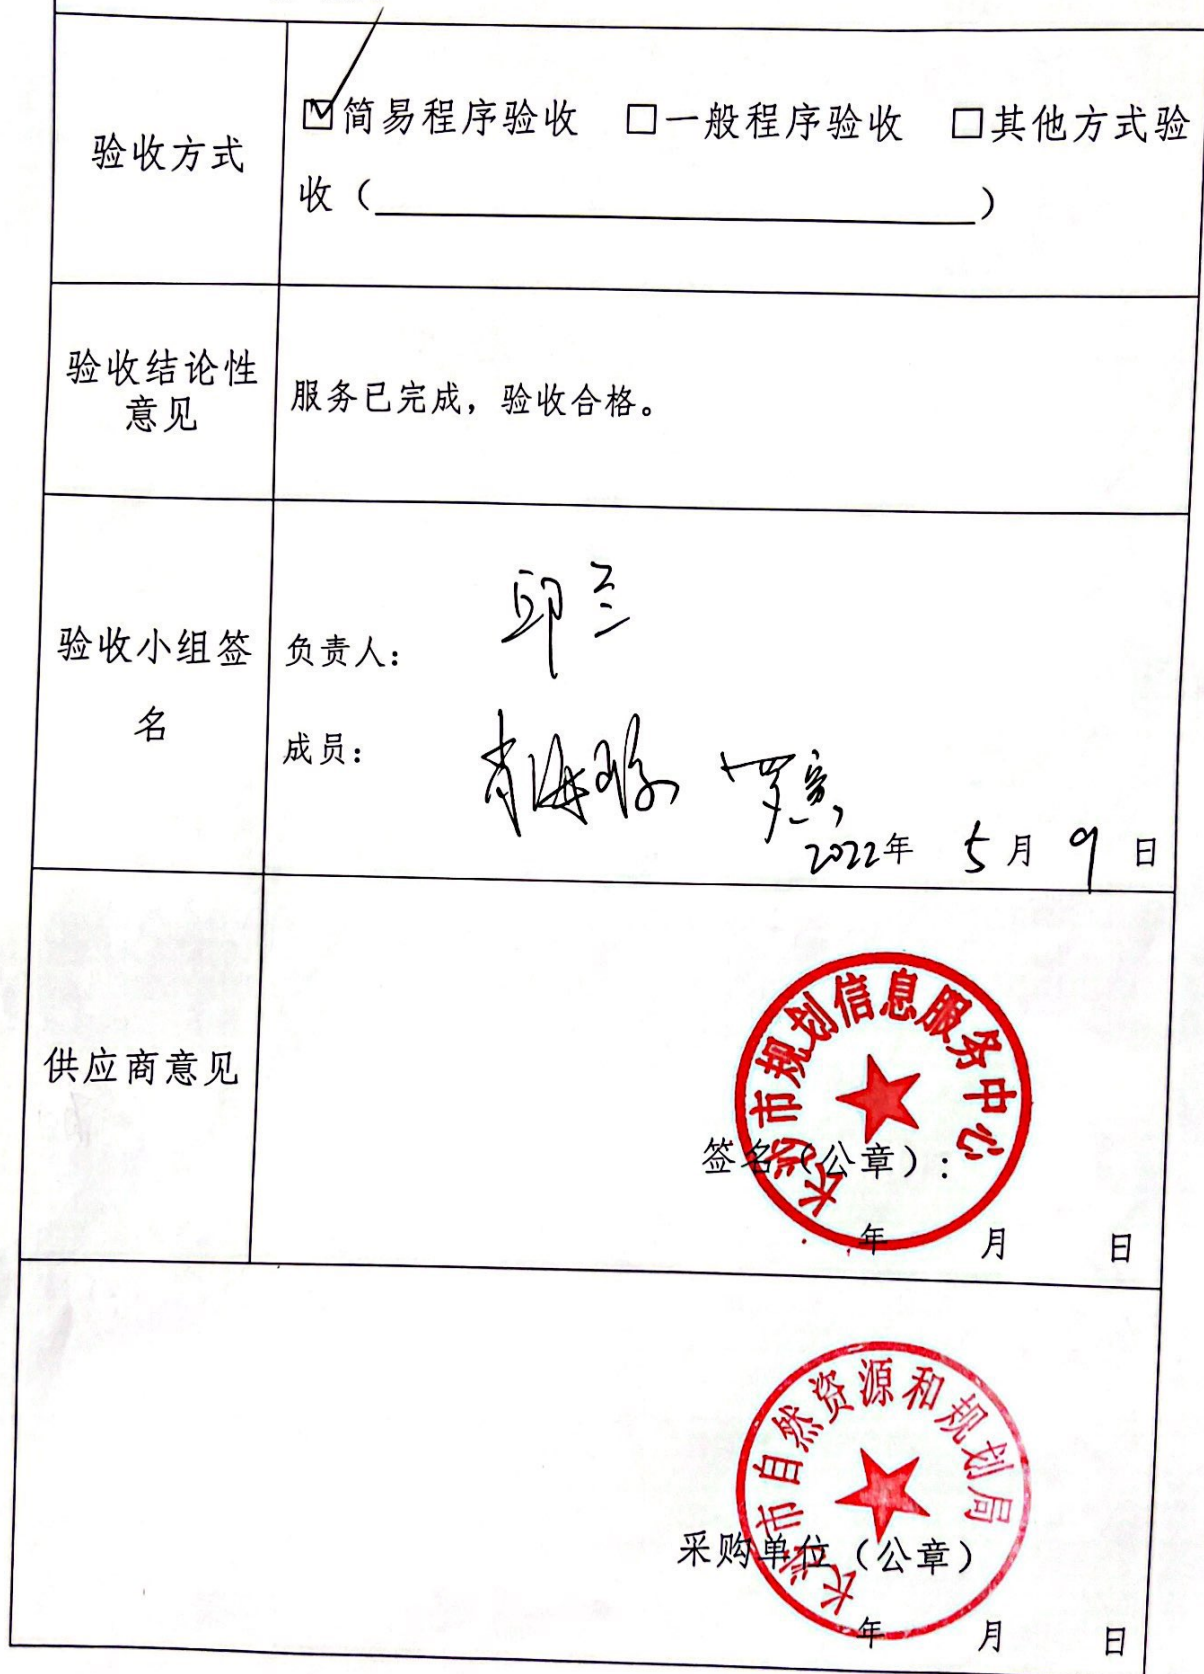 验收方式
☑简易程序验收 □一般程序验收 □其他方式验
收（                ）
验收结论性
意见
服务已完成，验收合格。
验收小组签
名
负责人：
邱兰
成员：
2022年 5月 9日
供应商意见
长沙市规划信息服务中心
签名（公章）：
年 月 日
长沙市自然资源和规划局
采购单位（公章）
年 月 日